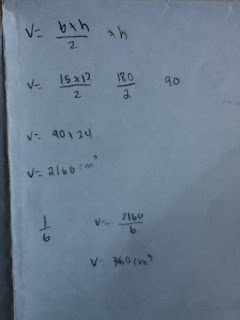 V= b×h/2 ×h
V= 15×12/2 180/2 90
V= 90×24
V= 2160 cm³
1/6 V= 2160/6
V: 360 cm³